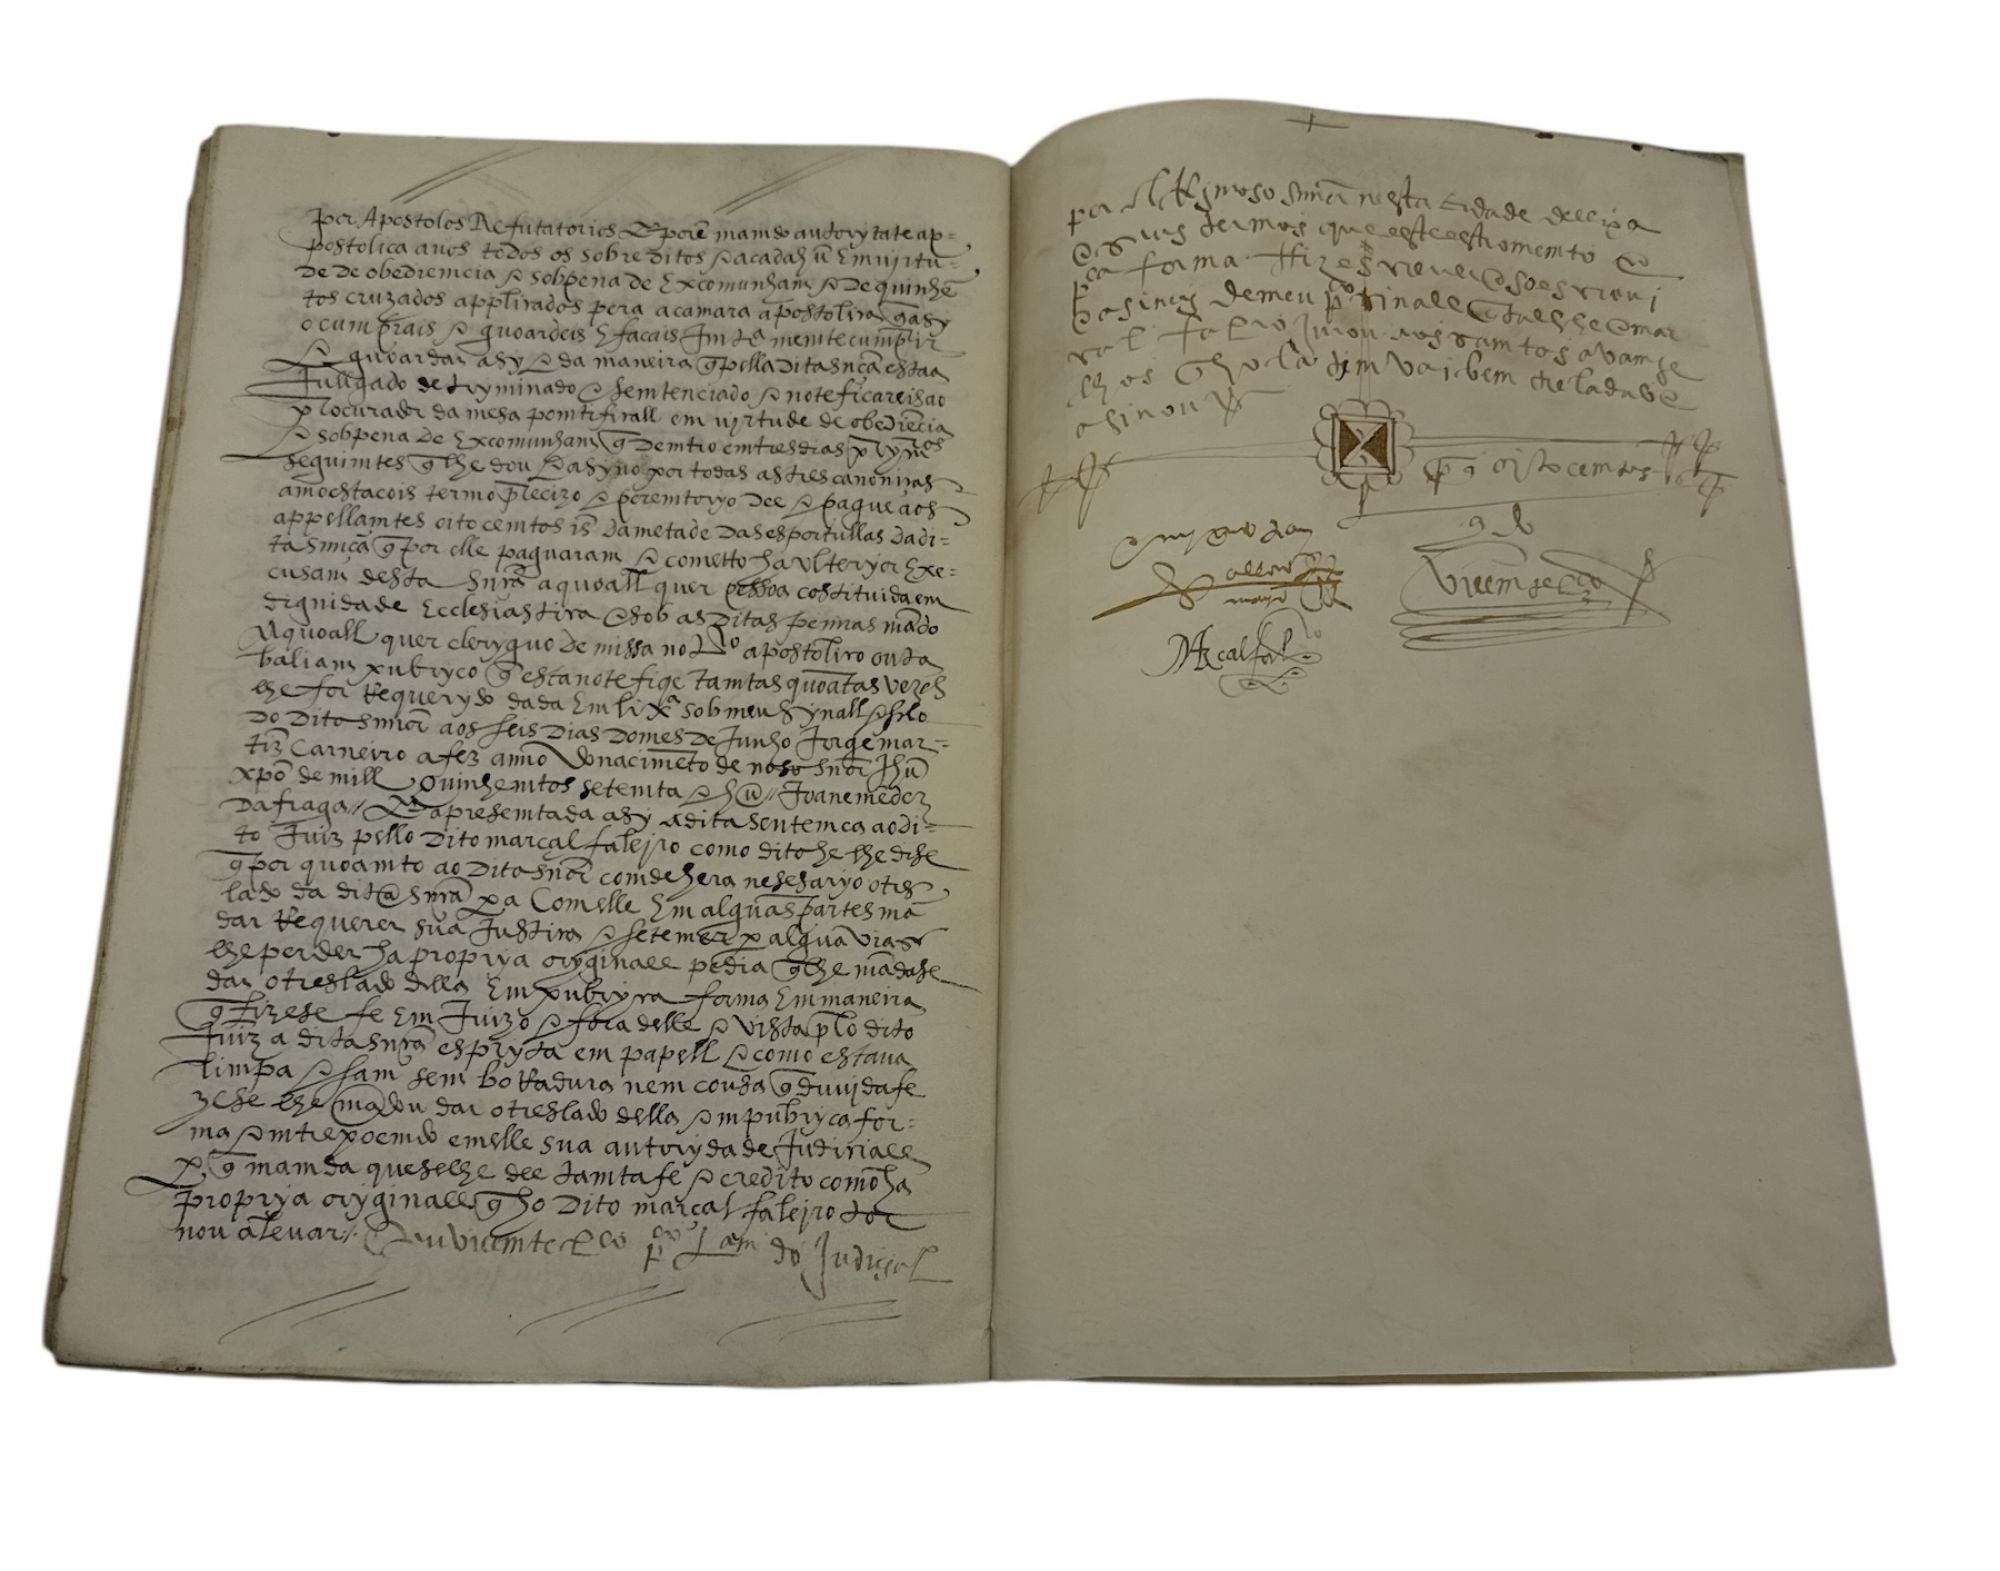 por Apostolos Refutatorios E porē mamdo autorytate ap=
postolica a vos todos os sobreditos e a cada hū Em virtu=
de de obediemcia e sobpena de Excomunham e De quinhē
tos cruzados applicados pera a camara apostolica q̄ asy
o cumprais e guoardeis E façais Imtrª memte cumprir
e guoardar asy e da maneira q̄ pella dita sncã esta
Jullgado detryminado e semtenciado e noteficareis ao
procurador da mesa pomtificall em virtude de obediēcia
e sobpena de Excomunham q̄ demtro em tres dias prymros
seguimtes q̄ lhe dou e asyno por todas as tres canonicas
amoestacois termo precizo e peremtoryo dee e pague aos
appellamtes oito cemtos rs da metade das esportullas da di=
ta snncã q̄ por elle paguaram e cometto ha ulteryor Exe=
cusam desta snncã a quoall quer pessoa costituida em
dignidade Ecclesiastica e sob as ditas pennas mãdo
A quoall quer cleryguo de missa notro apostolico ou ta
baliam pubryco q̄ esta notefiqe tamtas quoãtas vezes
lhe for Requerydo dada Em lixª sob meu synall e selo
do dito snnor aos seis dias do mes de Junho Jorge mar=
tiz Carneiro a fez anno do nacimēto de noso snnor Jhū
xpō de mill e quinhemtos setemta e hū // Joane mēdez
da fraga // E apresemtada asy a dita sentemca ao di=
to Juiz pello dito marcal faleiro como dito he lhe dise
q̄ por quoamto ao dito snnor comde hera nesesaryo o tres
lado da dita snncã pa Com elle Em algūas partes mã
dar Requerer sua Justica e se temer p algūa via se
lhe perder ha propria oryginall pedia q̄ lhe mãdase
dar o treslado della Em pubryca forma Em maneira
q̄ fizese fe Em Juizo e fora delle e vista plo dito
Juiz a dita snncã espryta em papell e como estava
limpa e sam sem boRadura nem cousa q̄ duvida fe
zese lhe mãdou dar o treslado della em pubryca for=
ma e mtrepoemdo em elle sua autorydade Judiciall
p q̄ mamda que se lhe dee tamta fe e credito como ha
propria oryginall q̄ ho dito marcal faleiro tor
nou a levar // E eu vicemte do Judiçal
por el Rej noso snnor nesta cidade de lixa
e seus termos que este estromemto em
pca forma fiz escrever e sob escrevi
e asinei de meu pco sinall q̄ tal he e mar
cal faleiro Jurou aos samtos avamge
lhos q̄ ho latim vai bem treladado e
asinou
pg oito cemtos